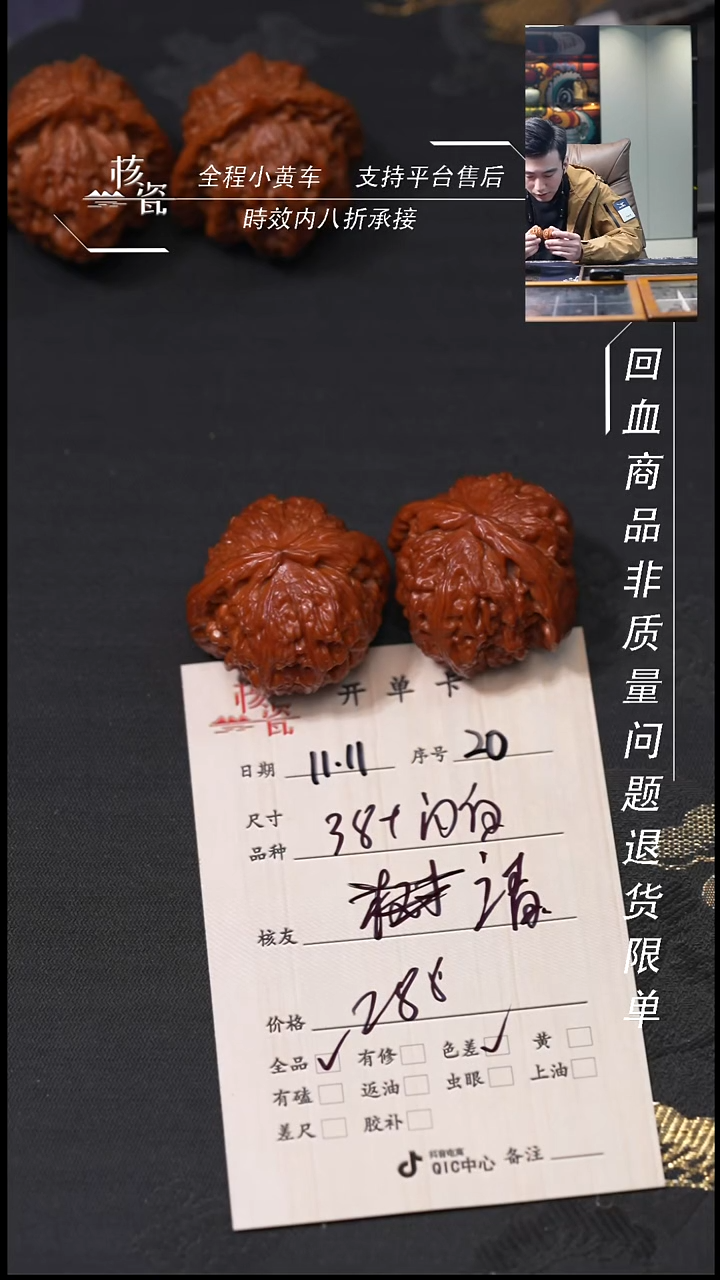 核瓷
全程小黄车 支持平台售后
時效内八折承接
回血商品非质量问题退货限单
核瓷 开单卡
日期 11.11 序号 20
尺寸 38+
品种
核友
价格 288
全品 ✓ 有修 色差 ✓ 黄
有磕 返油 虫眼 上油
差尺 胶补
抖音电商
QIC中心 备注